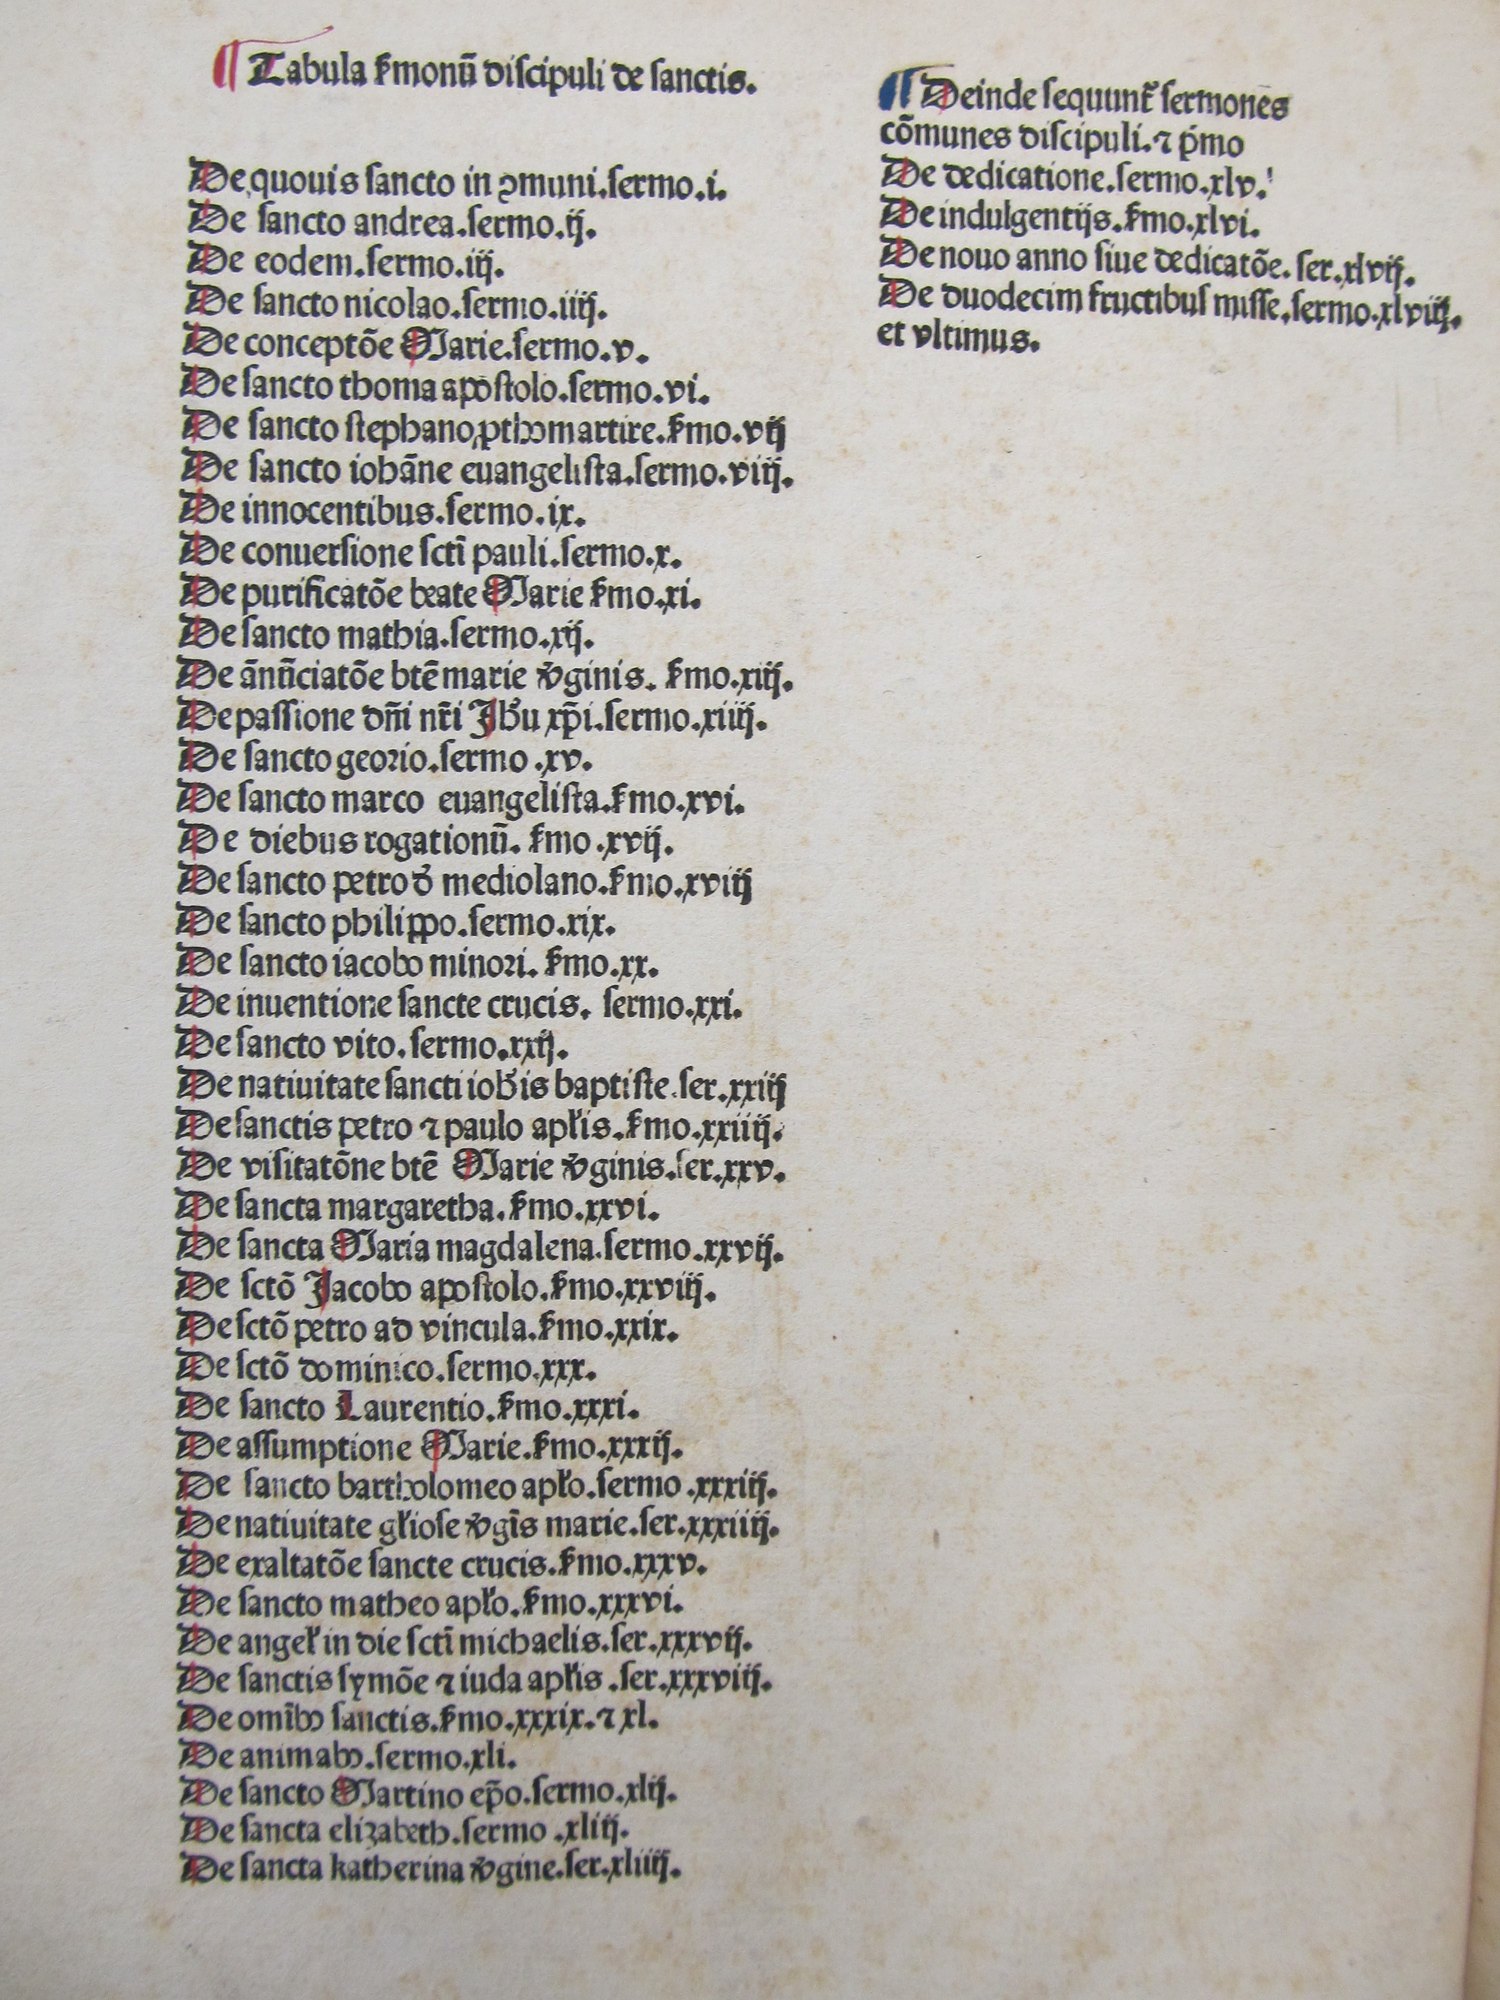 ¶ Tabula ẜmonū diſcipuli de ſanctis.
De quouis ſancto in ꝯmuni.ſermo.i.
De ſancto andrea.ſermo.ij.
De eodem.ſermo.iij.
De ſancto nicolao.ſermo.iiij.
De conceptōe Marie.ſermo.v.
De ſancto thoma apoſtolo.ſermo.vi.
De ſancto ſtephano ꝓthomartire.ẜmo.vij
De ſancto iohāne euangeliſta.ſermo.viij.
De innocentibus.ſermo.ix.
De conuerſione ſctī pauli.ſermo.x.
De purificatōe beate Marie ẜmo.xi.
De ſancto mathia.ſermo.xij.
De ānūciatōe btē marie v̾ginis. ẜmo.xiij.
De paſſione dn̄i nr̄i Jh̓u xp̄i.ſermo.xiiij.
De ſancto geoꝛio.ſermo .xv.
De ſancto marco euangeliſta.ẜmo.xvi.
De diebus rogationū. ẜmo .xvij.
De ſancto petro d̓ mediolano.ẜmo.xviij
De ſancto philippo.ſermo.xix.
De ſancto iacobo minoꝛi. ẜmo.xx.
De inuentione ſancte crucis. ſermo.xxi.
De ſancto vito.ſermo.xxij.
De natiuitate ſancti ioh̓is baptiſte.ſer.xxiij
De ſanctis petro ⁊ paulo apl̓is.ẜmo.xxiiij.
De viſitatōne btē Marie v̾ginis.ſer.xxv.
De ſancta margaretha.ẜmo.xxvi.
De ſancta Maria magdalena.ſermo.xxvij.
De ſctō Jacobo apoſtolo.ẜmo.xxviij.
De ſctō petro ad vincula.ẜmo.xxix.
De ſctō dominico.ſermo.xxx.
De ſancto Laurentio.ẜmo.xxxi.
De aſſumptione Marie.ẜmo.xxxij.
De ſancto bartholomeo apl̓o.ſermo .xxxiij.
De natiuitate gl̓ioſe v̾gīs marie.ſer.xxxiiij.
De exaltatōe ſancte crucis.ẜmo.xxxv.
De ſancto matheo apl̓o.ẜmo.xxxvi.
De angel̓ in die ſctī michaelis.ſer.xxxvij.
De ſanctis ſymōe ⁊ iuda apl̓is .ſer.xxxviij.
De omībꝰ ſanctis.ẜmo.xxxix.⁊ xl.
De animabꝰ.ſermo.xli.
De ſancto Martino ep̄o.ſermo.xlij.
De ſancta elizabeth.ſermo .xliij.
De ſancta katherina v̾gine.ſer.xliiij.
¶ Deinde ſequunt᷑ ſermones
cōmunes diſcipuli.⁊ pͥmo
De dedicatione.ſermo.xlv.
De indulgentijs.ẜmo.xlvi.
De nouo anno ſiue dedicatōe. ſer.xlvij.
De duodecim fructibuſ miſſe.ſermo.xlviij.
et vltimus.